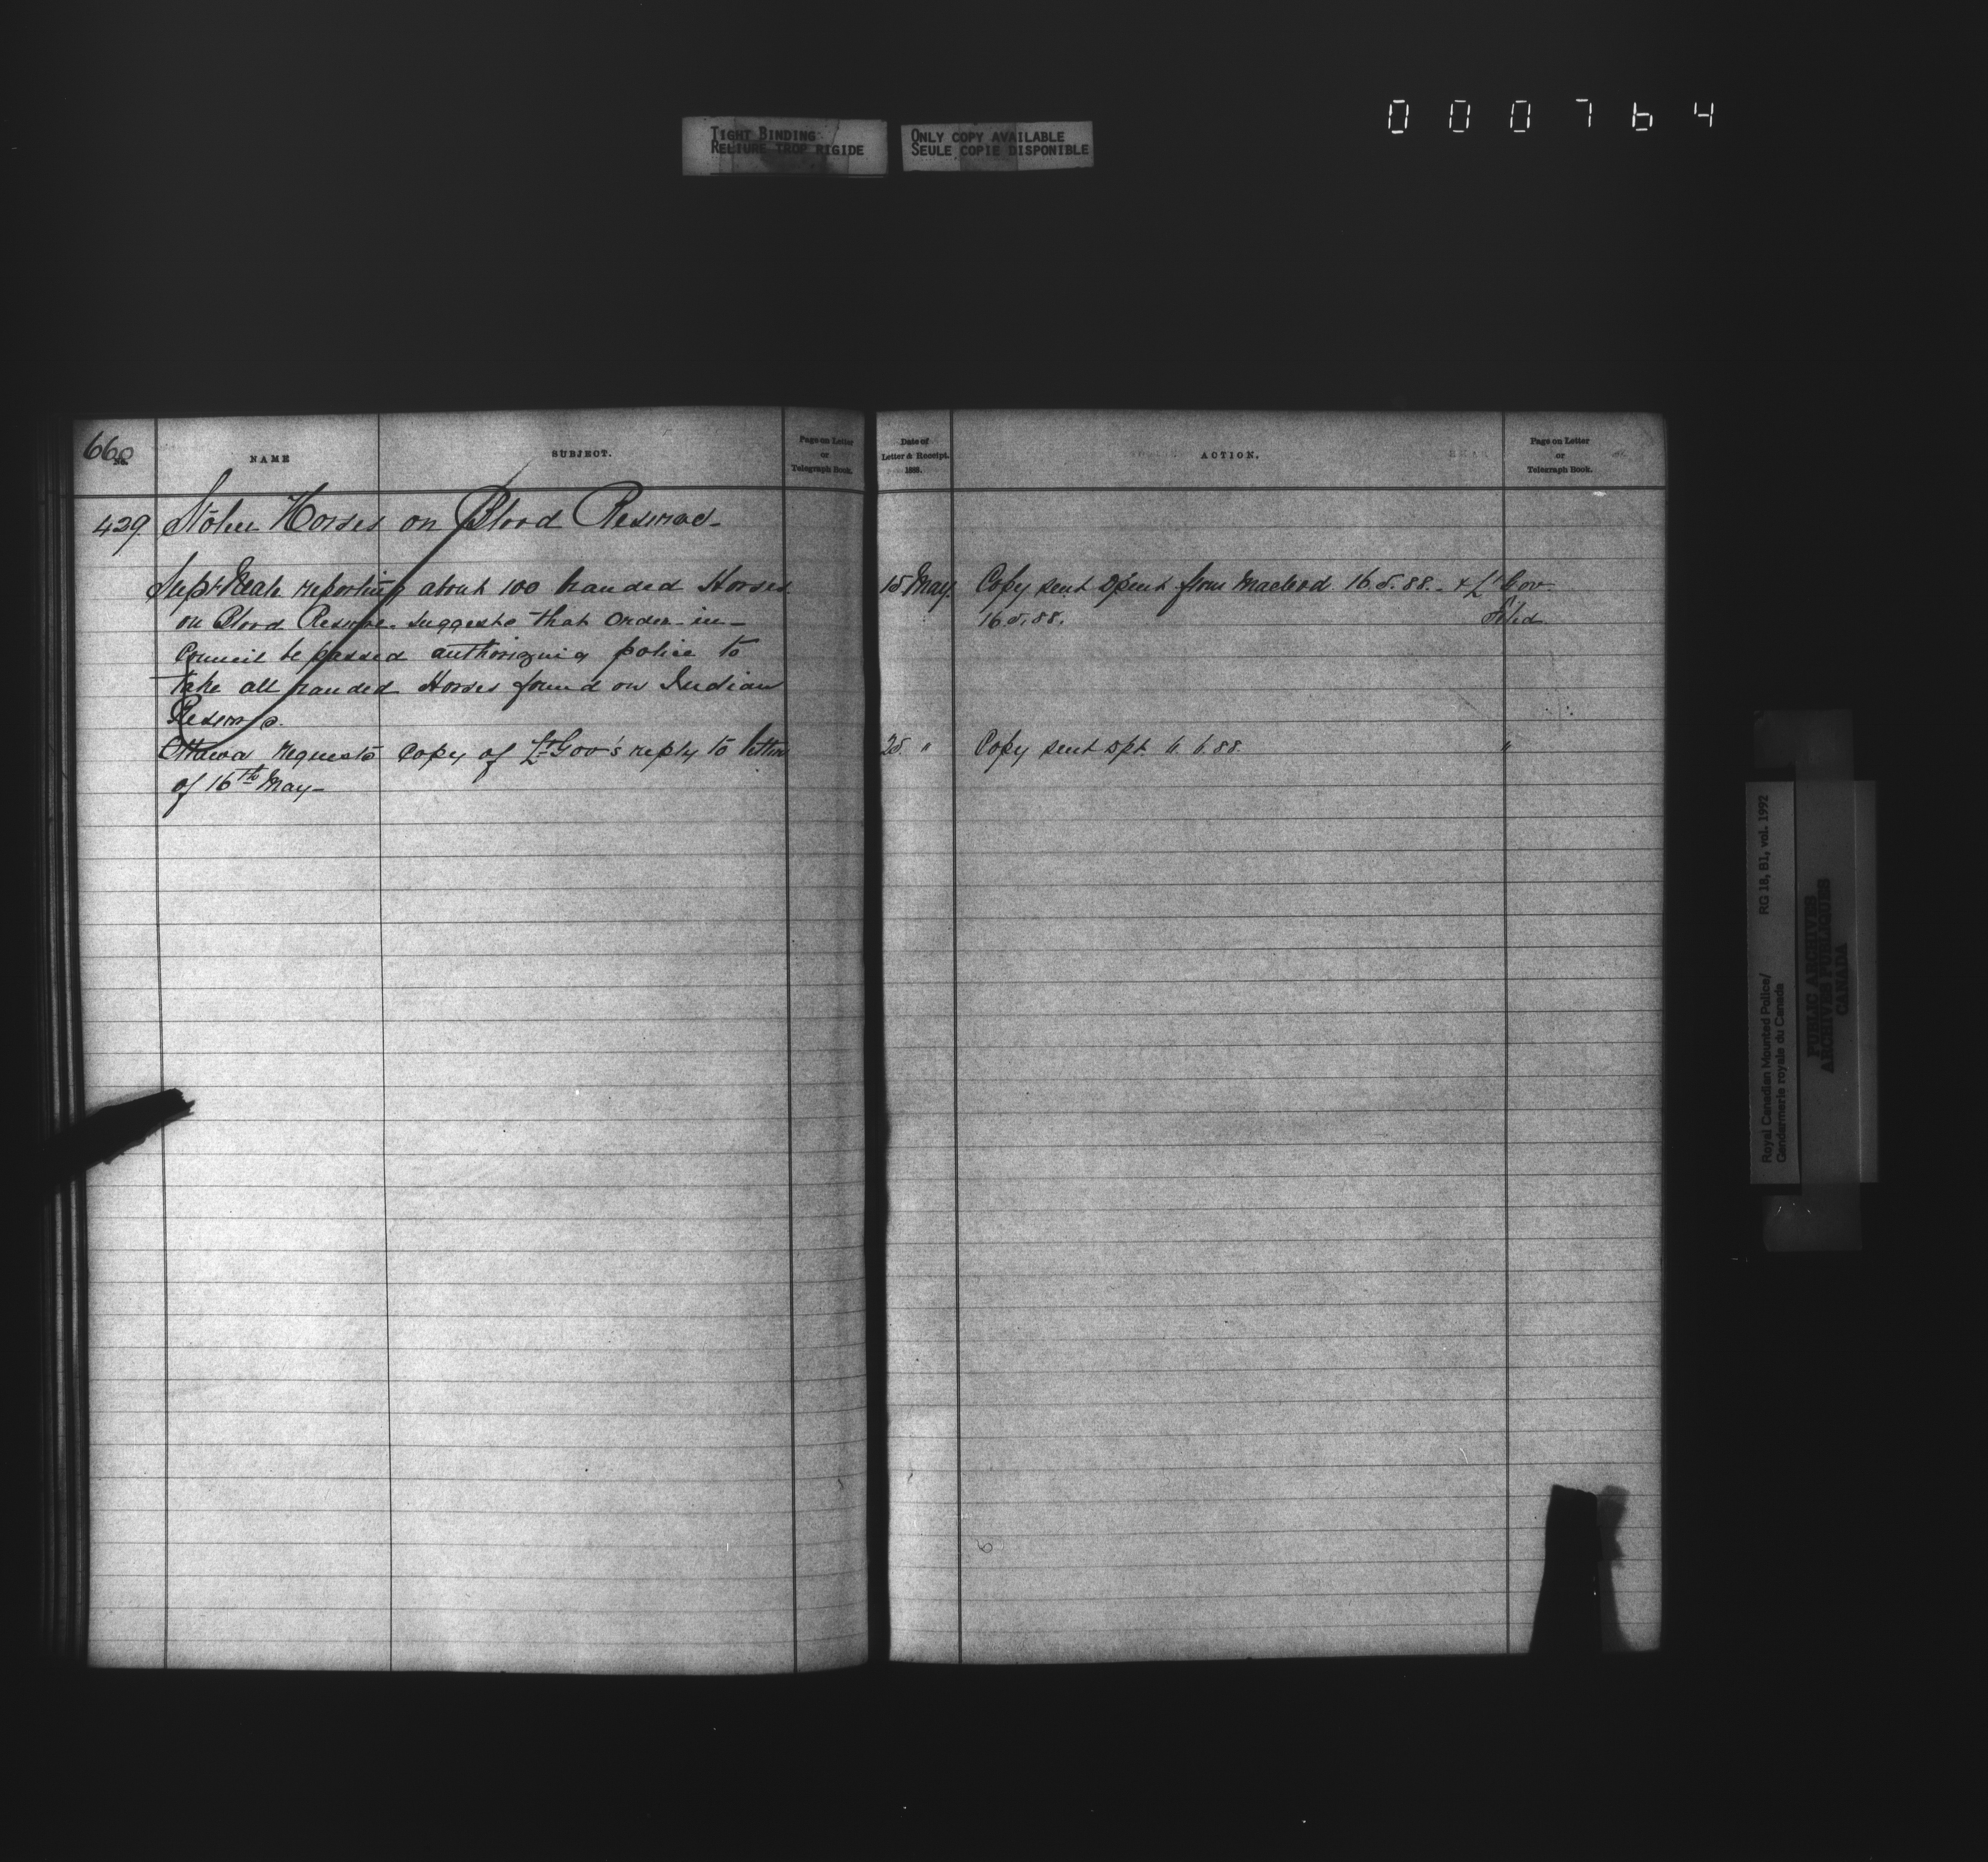 000764
TIGHT BINDING
RELIURE TROP RIGIDE
ONLY COPY AVAILABLE
SEULE COPIE DISPONIBLE
660
No.
NAME
SUBJECT.
Page on Letter
or
Telegraph Book.
429. Stolen Horses on Blood Reserve
Supt Neale reporting about 100 branded Horses
on Blood Reserve. Suggests that Order-in-
Council be passed authorizing police to
take all branded Horses found on Indian
Reserves.
Ottawa requests copy of Lt Gov's reply to letter
of 16th May-
Date of
Letter & Receipt.
1888.
ACTION.
Page on Letter
or
Telegraph Book.
15 May. Copy sent from Macleod 16.5.88. & Lt Gov
16.5.88. Filed
25 " Copy sent Dpt. 6.88. "
Royal Canadian Mounted Police/
Gendarmerie royale du Canada
RG 18, B1, vol. 1992
PUBLIC ARCHIVES
ARCHIVES PUBLIQUES
CANADA